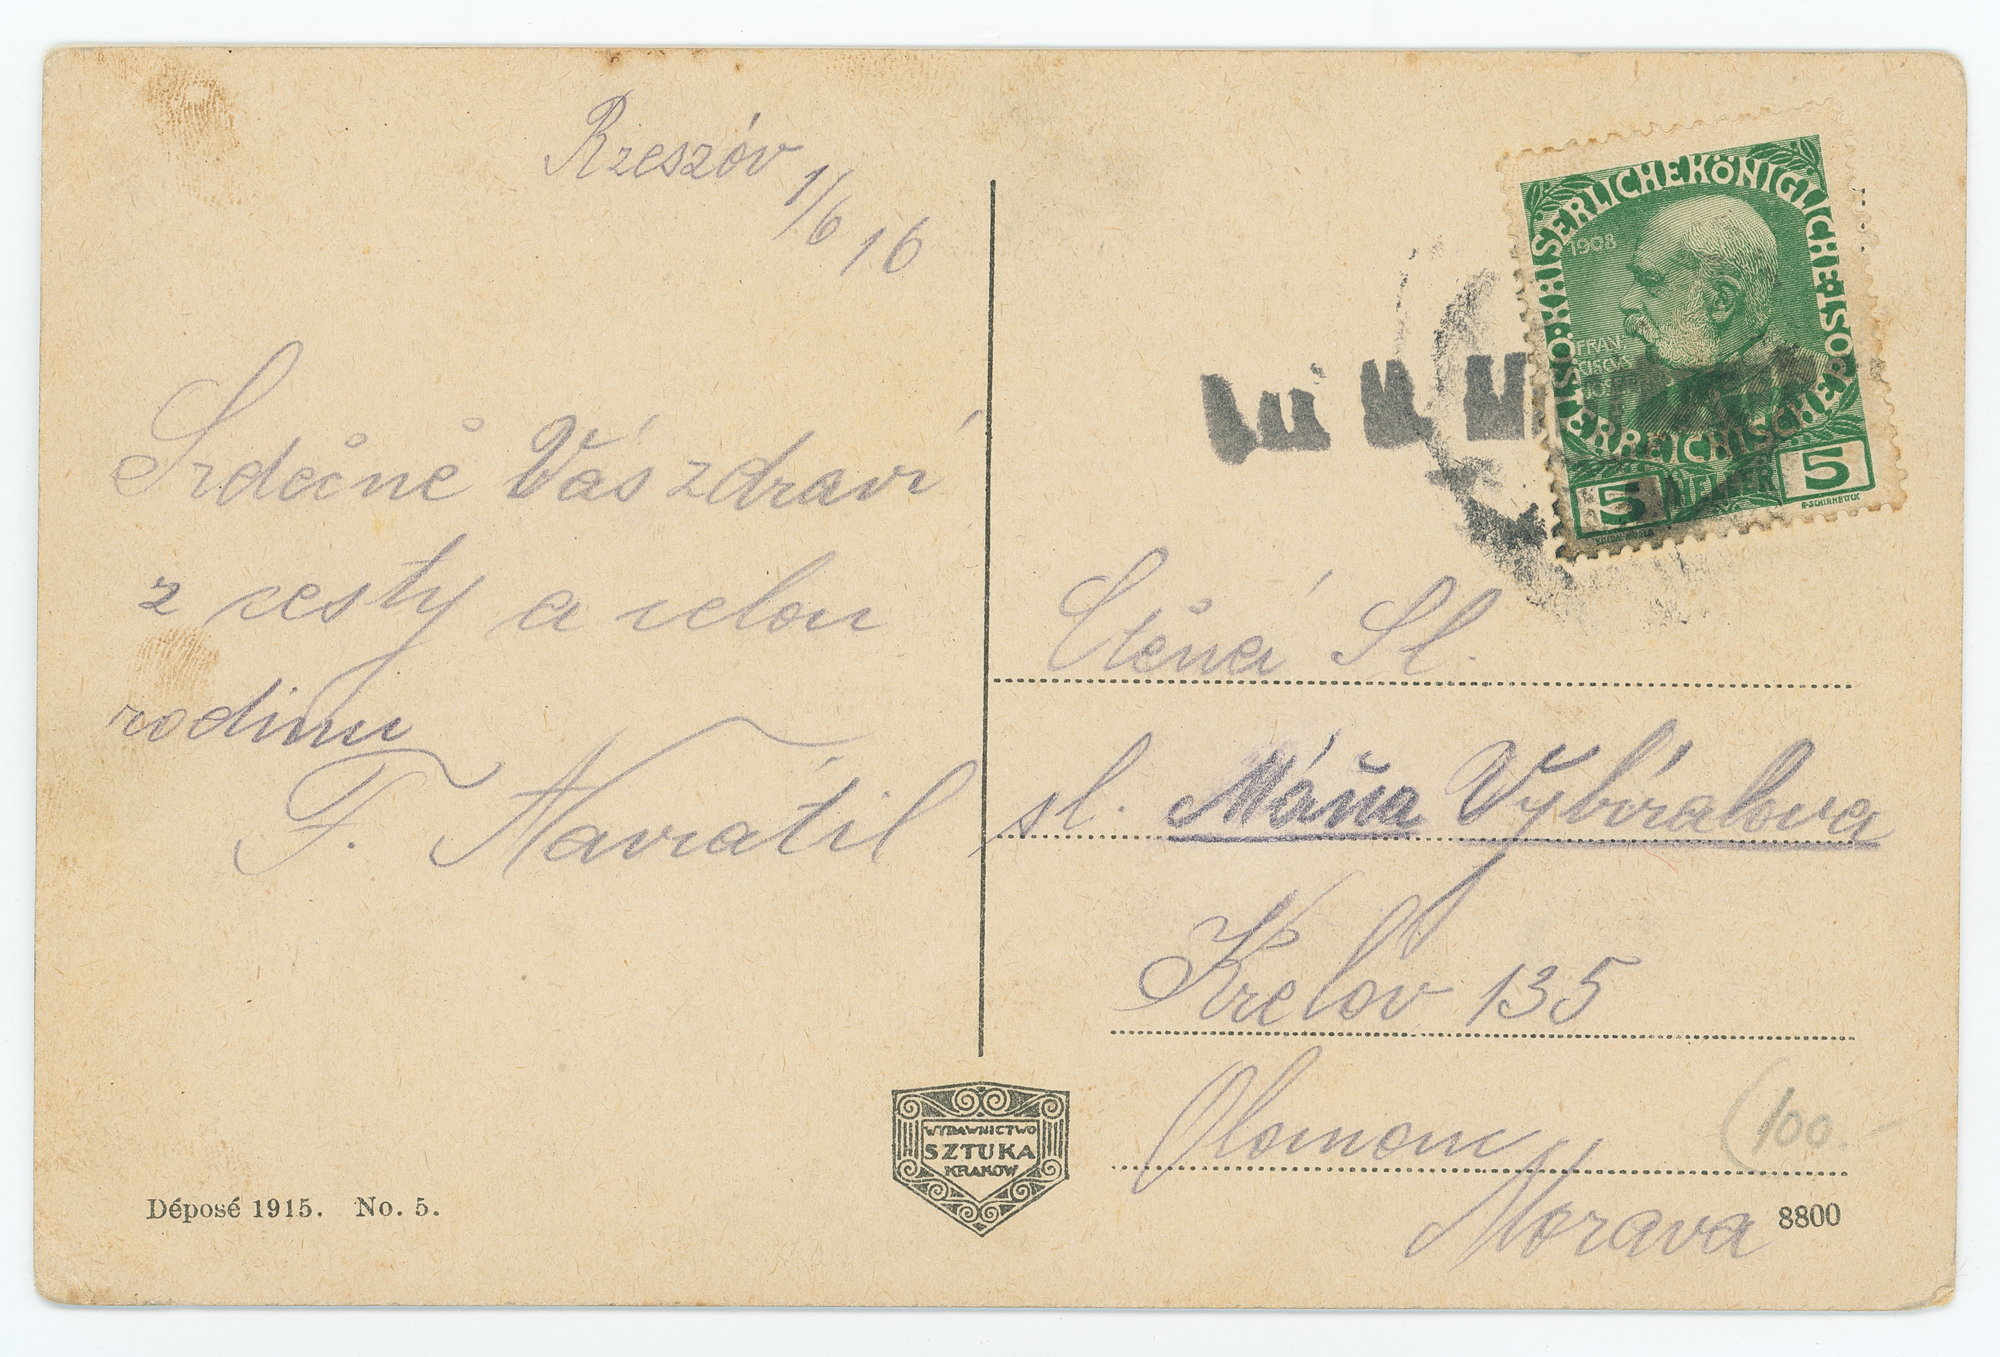 Rzeszóv 1/6 16
Srdečně Vás zdraví
z cesty a celou
rodinu
F. Navrátil
KAISERLICHE KÖNIGLICHE ÖSTERREICHISCHE
1908
FRAN-
CISCVS
JOSEPH
5 HELLER 5
F. SCHIRNBÖCK
Ctěná Sl.
sl. Máňa Vybíralova
Křelov 135
Olomouc
Morava
(100.-
WYDAWNICTWO
SZTUKA
KRAKÓW
Déposé 1915. No. 5.
8800